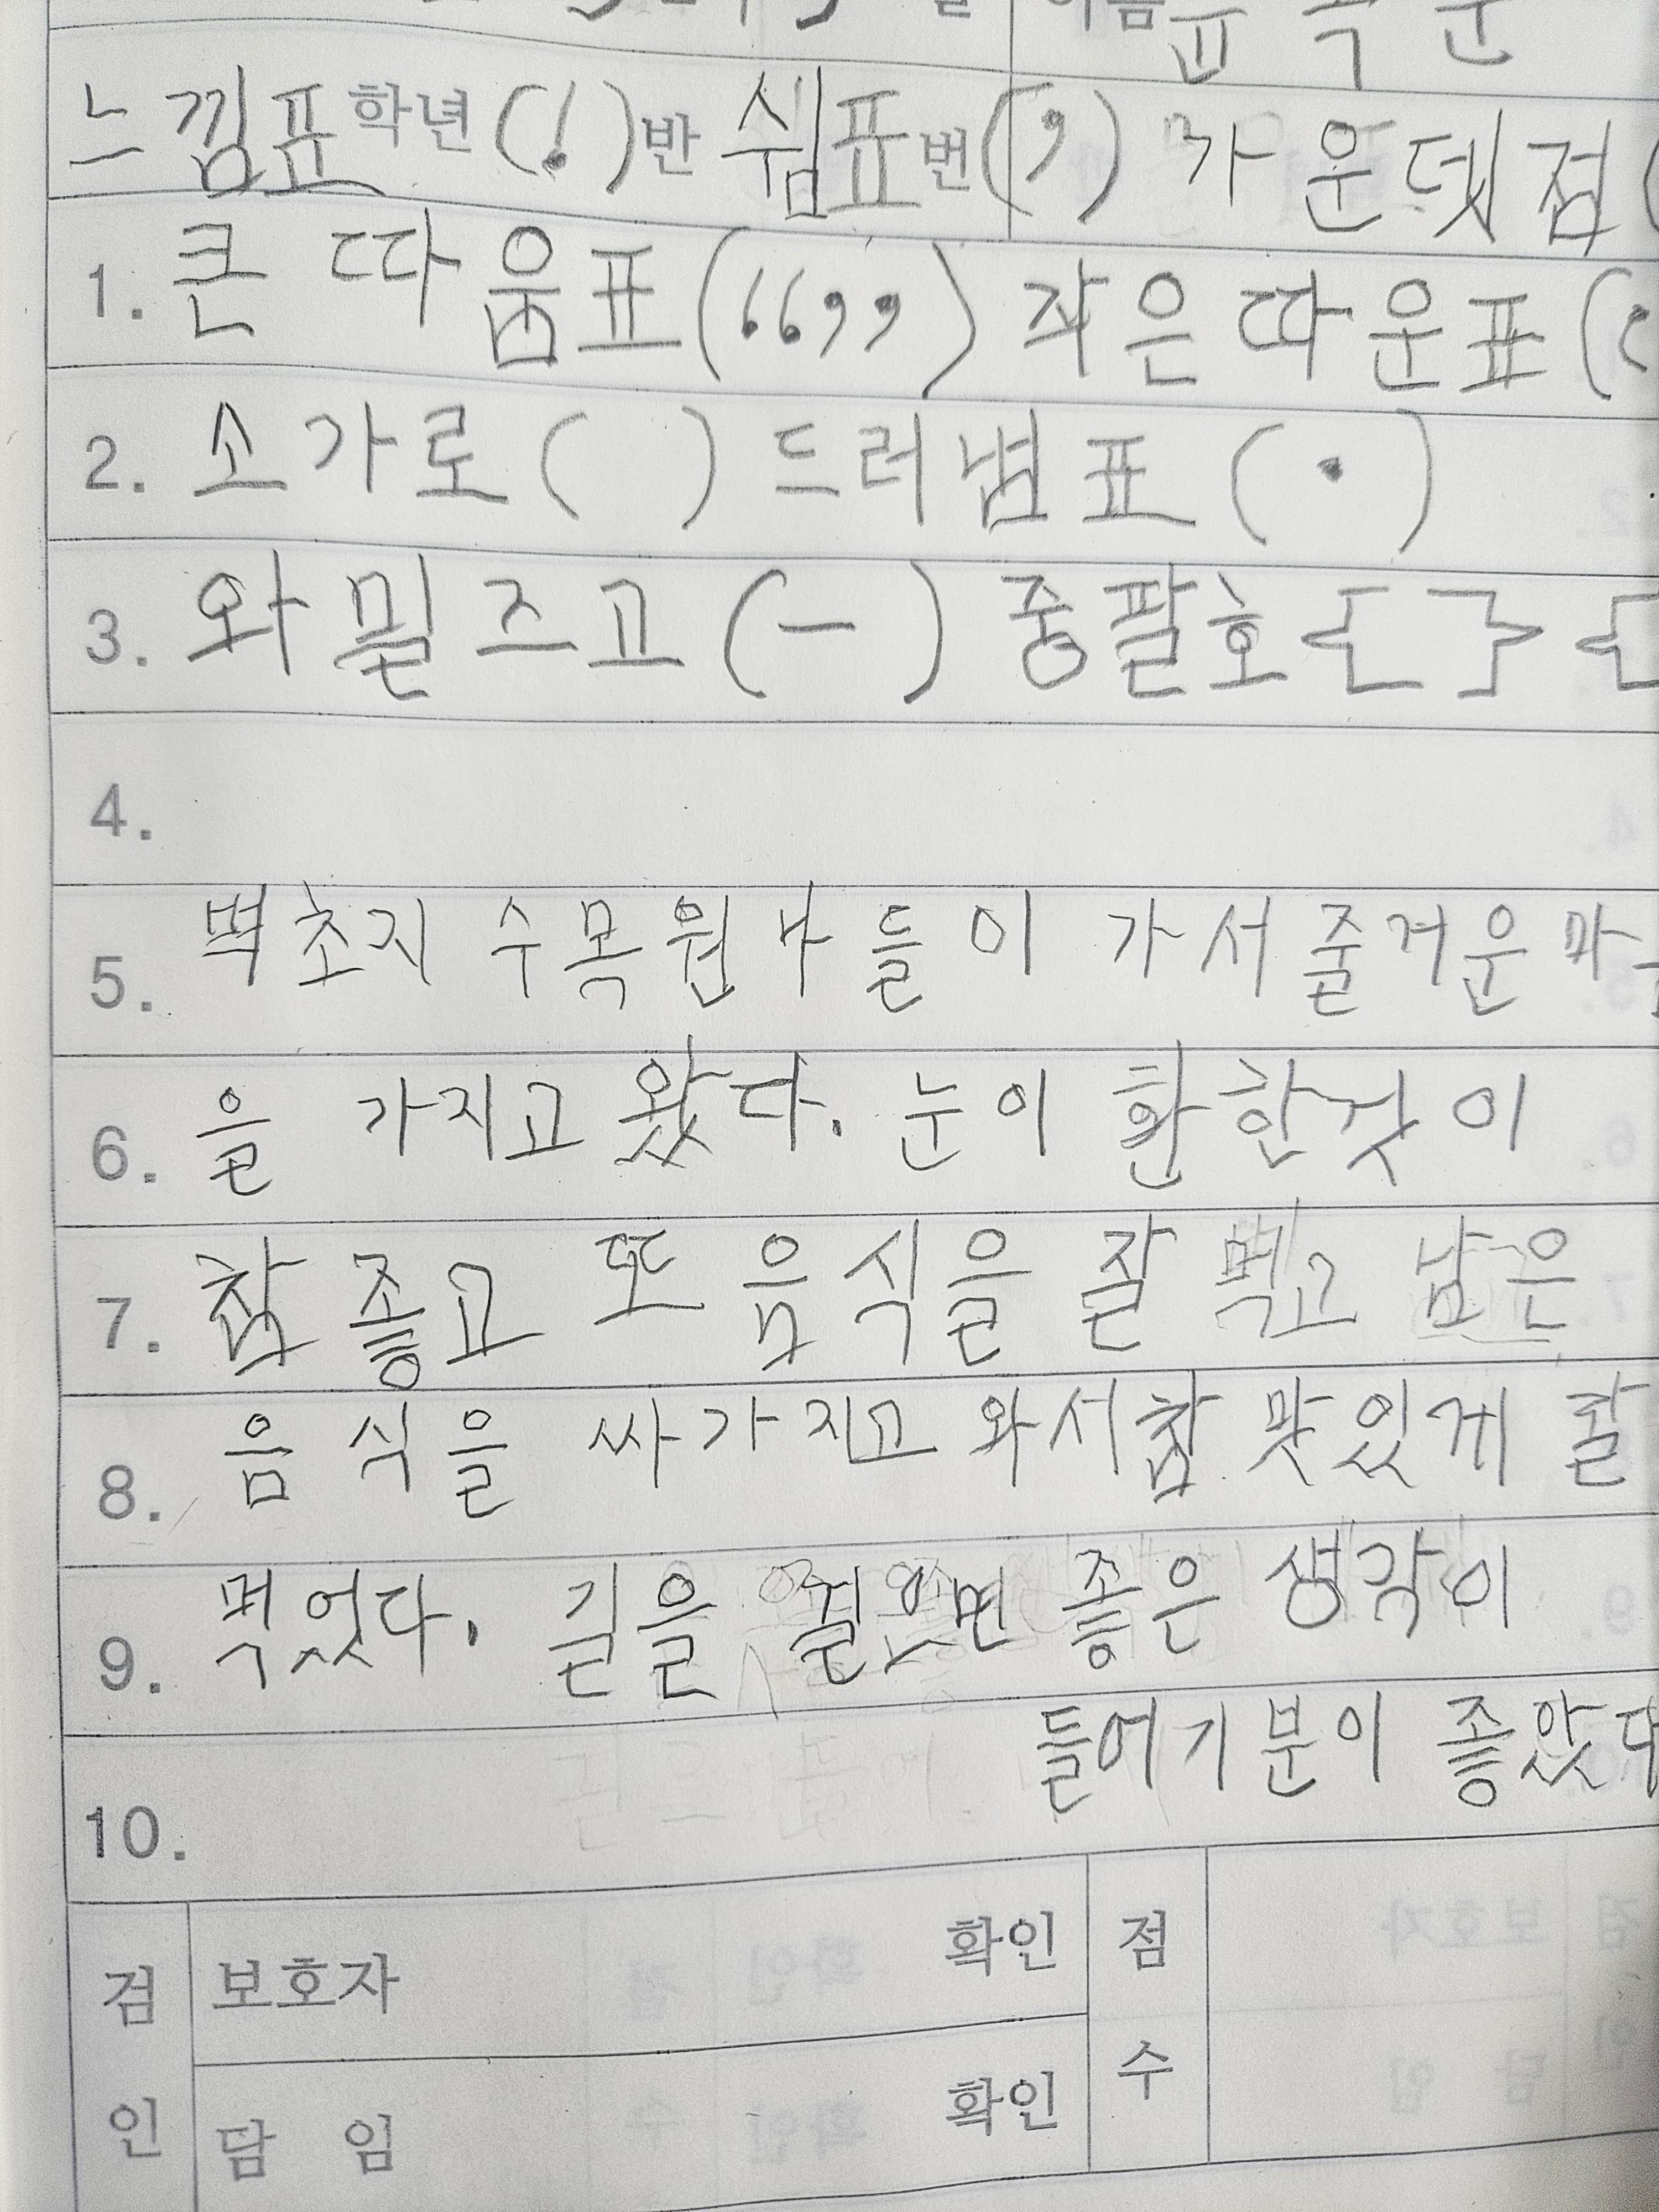 이름
느낌표 학년 (!) 반 쉼표 번 (,) 가운뎃점 (
1. 큰 따움표 (“”) 작은 따운표 (
2. 소가로 ( ) 드러냄표 (·)
3. 와밑즈고 (—) 중팔호 { } {
4.
5. 벽초지 수목원 나들이 가서 줄거운 마
6. 을 가지고 왔다. 눈이 환한것이
7. 참 좋고 또 음식을 잘 먹고 남은
8. 음식을 싸가지고 와서 참 맛있게 잘
9. 먹었다. 길을 걸으면 좋은 생각이
10. 들어 기분이 좋았다
검인 보호자 확인 점수
담 임 확인